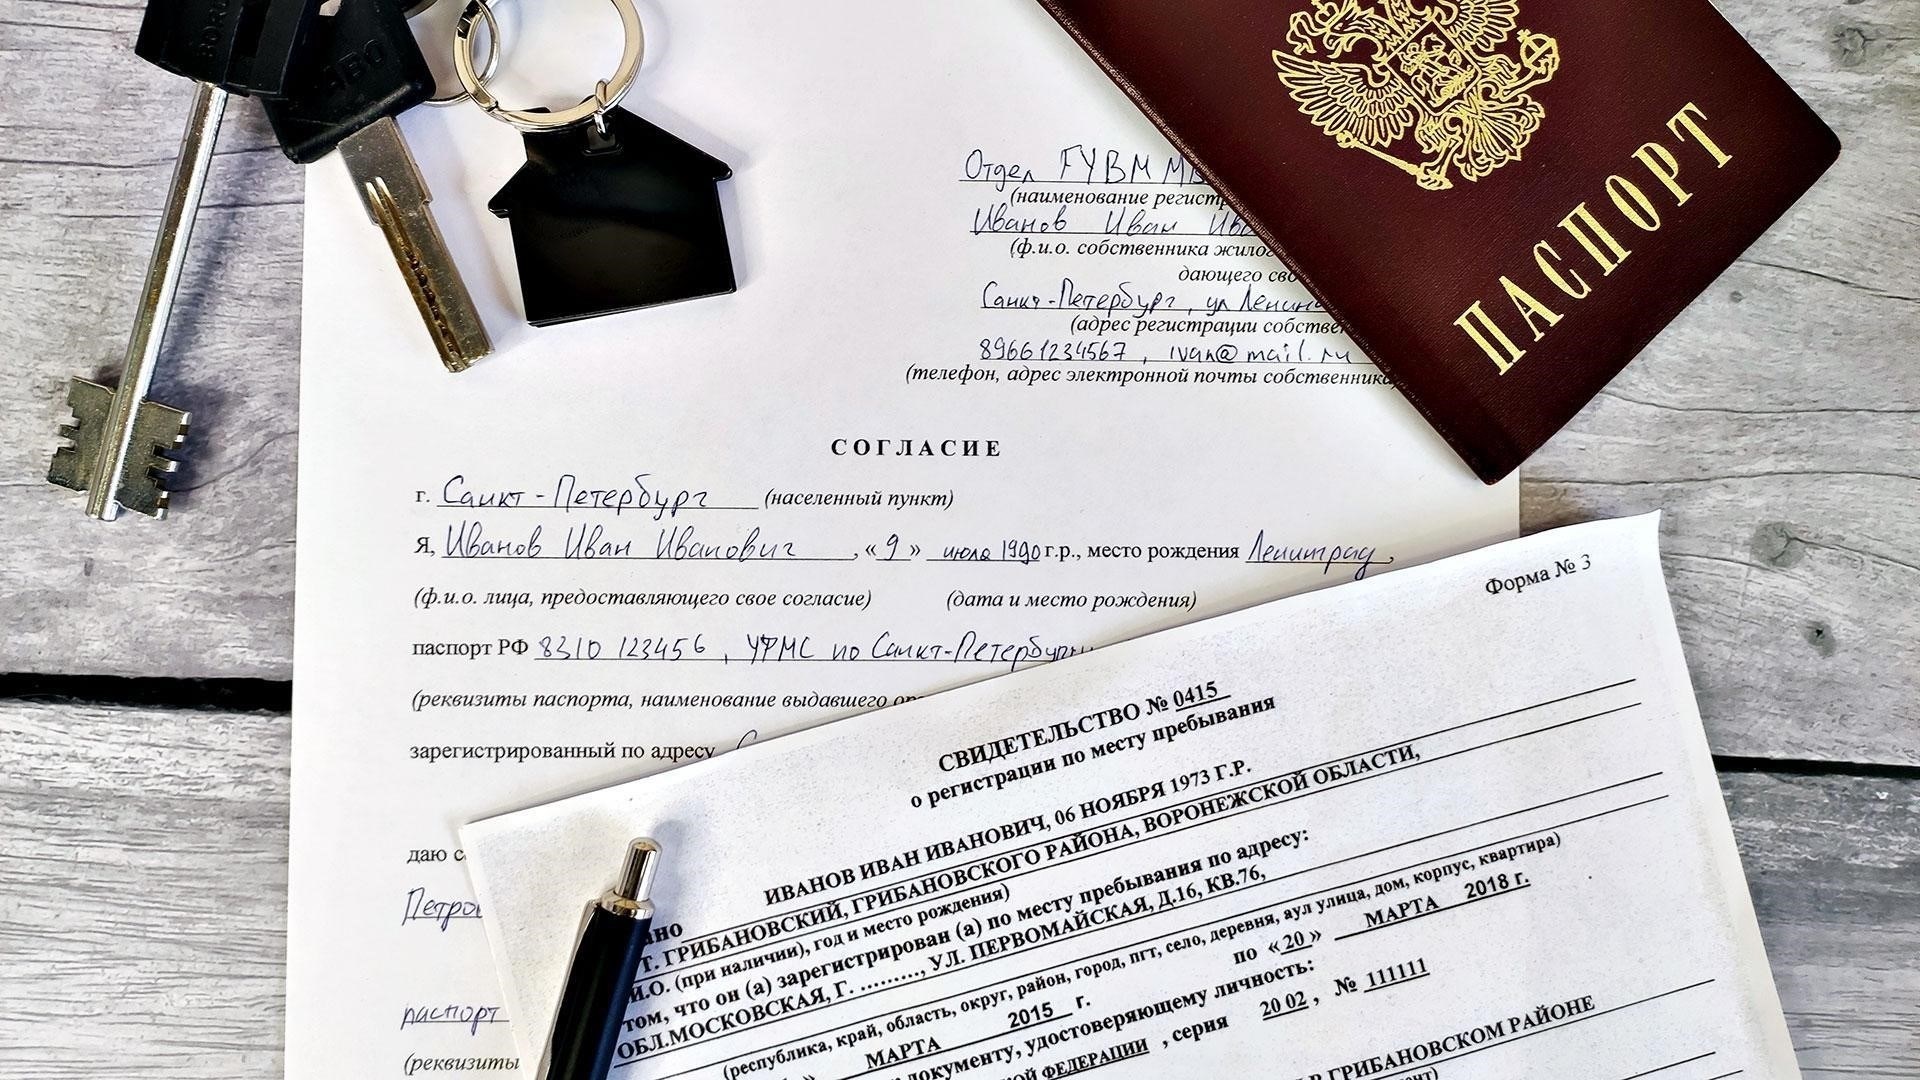 ПАСПОРТ
АВО
Отдел ГУВМ
(наименование
Иванов Иван
(ф.и.о. собственника
дающего
Санкт-Петербург, ул
(адрес регистрации
89661234567, ivan@mail.ru
(телефон, адрес электронной почты собственника,
СОГЛАСИЕ
г. Санкт-Петербург (населенный пункт)
Я, Иванов Иван Иванович, «9» июля 1990 г.р., место рождения Ленинград,
(ф.и.о. лица, предоставляющего свое согласие) (дата и место рождения)
паспорт РФ 8310 123456, УФМС по Санкт-Петербургу
(реквизиты паспорта, наименование выдавшего
зарегистрированный по адресу
даю
паспорт
(реквизиты
Форма № 3
СВИДЕТЕЛЬСТВО № 0415
о регистрации по месту пребывания
ИВАНОВ ИВАН ИВАНОВИЧ, 06 НОЯБРЯ 1973 Г.Р.
Т. ГРИБАНОВСКИЙ, ГРИБАНОВСКОГО РАЙОНА, ВОРОНЕЖСКОЙ ОБЛАСТИ,
И.О. (при наличии), год и место рождения)
том, что он (а) зарегистрирован (а) по месту пребывания по адресу:
ОБЛ.МОСКОВСКАЯ, Г. .........., УЛ. ПЕРВОМАЙСКАЯ, Д.16, КВ.76,
(республика, край, область, округ, район, город, пгт, село, деревня, аул улица, дом, корпус, квартира)
» МАРТА 2015 г. по «20» МАРТА 2018 г.
документу, удостоверяющему личность:
ФЕДЕРАЦИИ, серия 20 02, № 111111
ГРИБАНОВСКОМ РАЙОНЕ